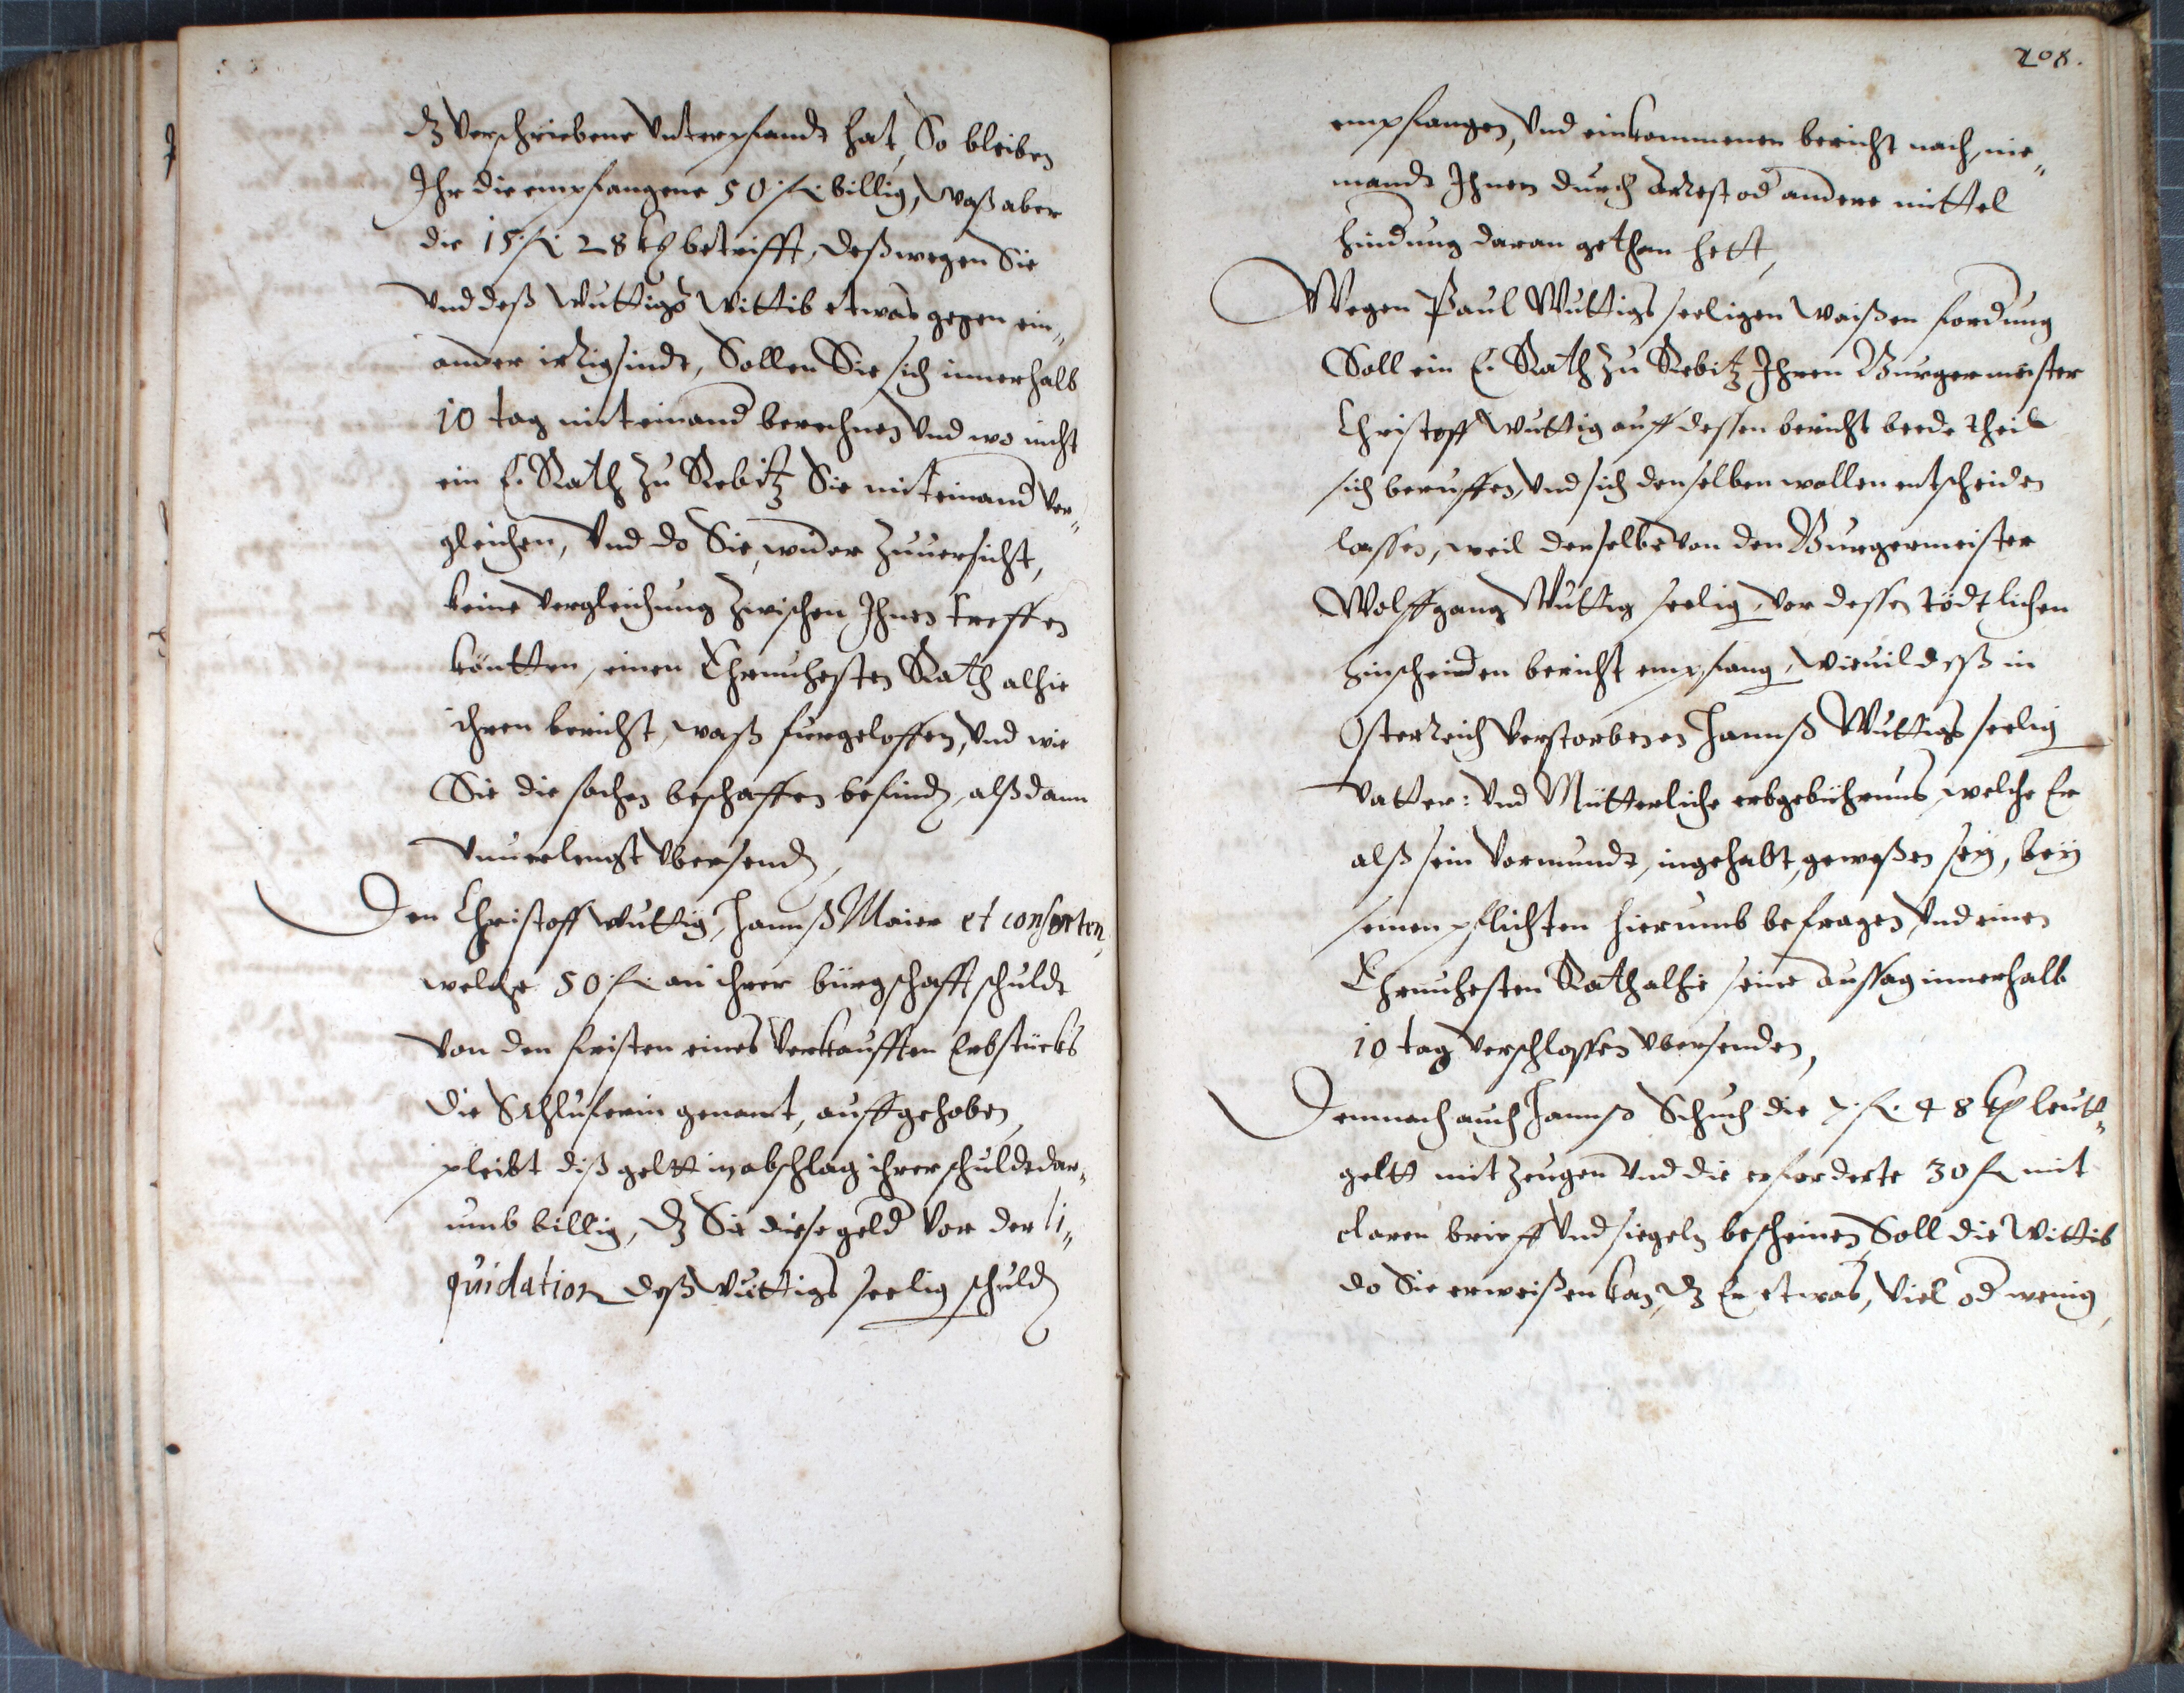 dz verschriebene Vnterpfandt hat, So bleiben
Ihr die empfangene 50 fl. billig, Waß aber
die 15 fl. 28 kr betrifft, deßwegen Sie
Vnd deß Wuttigs Wittib etwas gegen ein„
ander irrig sindt, Sollen Sie sich innerhalb
10 tag mit einand berechnen Vnd wo nicht
ein E. Rath zu Rebitz Sie mit einand Ver„
gleichen, Vnd do Sie, wider Zuuersicht,
keine Vergleichung Zwischen Ihnen treffen
köntten, einen Ehrnuhesten Rath alhie
ihren bericht, waß furgeloffen, Vnd wie
Sie die sachen beschaffen befinden, alß dann
Vnuerlengst Vbersenden,
Den Christoff Wuttig, Hannß Maier et consorten,
welche 50 fl. an ihrer bürgschafft schuldt
Von den fristen eines Verkaufften Erbstücks
die Schluferin genant, auffgehoben,
pleibt diß geltt in abschlag ihrer schuldt dar„
umb billig, dz Sie diese geld Vor der li„
quidation deß Wuttigs seelig schulden
208.
empfangen, Vnd einkommenen bericht nach, nie„
mandt Ihnen durch Arrest od andere mittel
hindung daran gethan hett,
Wegen Paul Wuttigs seeligen Waißen fordung
Soll ein E. Rath zu Rebitz Ihren Burgermeister
Christoff Wuttig auff dessen bericht beede theil
sich beruffen, Vnd sich denselben wollen entscheiden
lassen, weil derselbe Von den Burgermeister
Wolffgang Wuttig seelig, Vor dessen tödtlichen
hinscheiden bericht empfang, Wieuil deß in
Österreich Verstorbenen Hannß Wuttigs seelig
Vatter: Vnd Mütterliche erbgebührnus, welche Er
alß sein Vormundt, ingehabt, geweßen sey, bey
seinen pflichten hierumb befragen Vnd einen
Ehrnuhesten Rath alhie seine aussag innerhalb
10 tag Verschlossen Vbersenden,
Demnach auch Hannß Schuch die 7. fl. 48 kr leutt„
geltt mit Zeugen Vnd die erforderte 30 fl mit
claren brieff Vnd siegeln bescheinen, Soll die Wittib
do Sie erweißen kan, dz Er etwas, Viel od wenig,